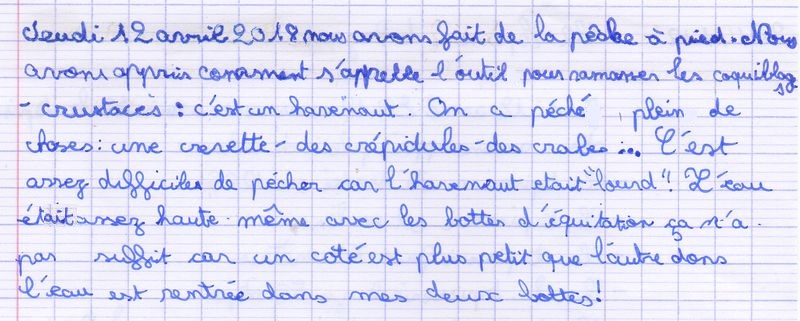 Jeudi 12 avril 2018 nous avons fait de la pêche à pied. Nous
avons appris comment s'appelle l'outil pour ramasser les coquillages
- crustacés : c'est un havenaut. On a péché plein de
choses : une crevette - des crépidules - des crabes ... C'est
assez difficiles de pécher car l'havenaut etait "lourd"! L'eau
était assez haute. même avec les bottes d'équitation ça n'a
pas suffit car un coté est plus petit que l'autre donc
l'eau est rentrée dans mes deux bottes!